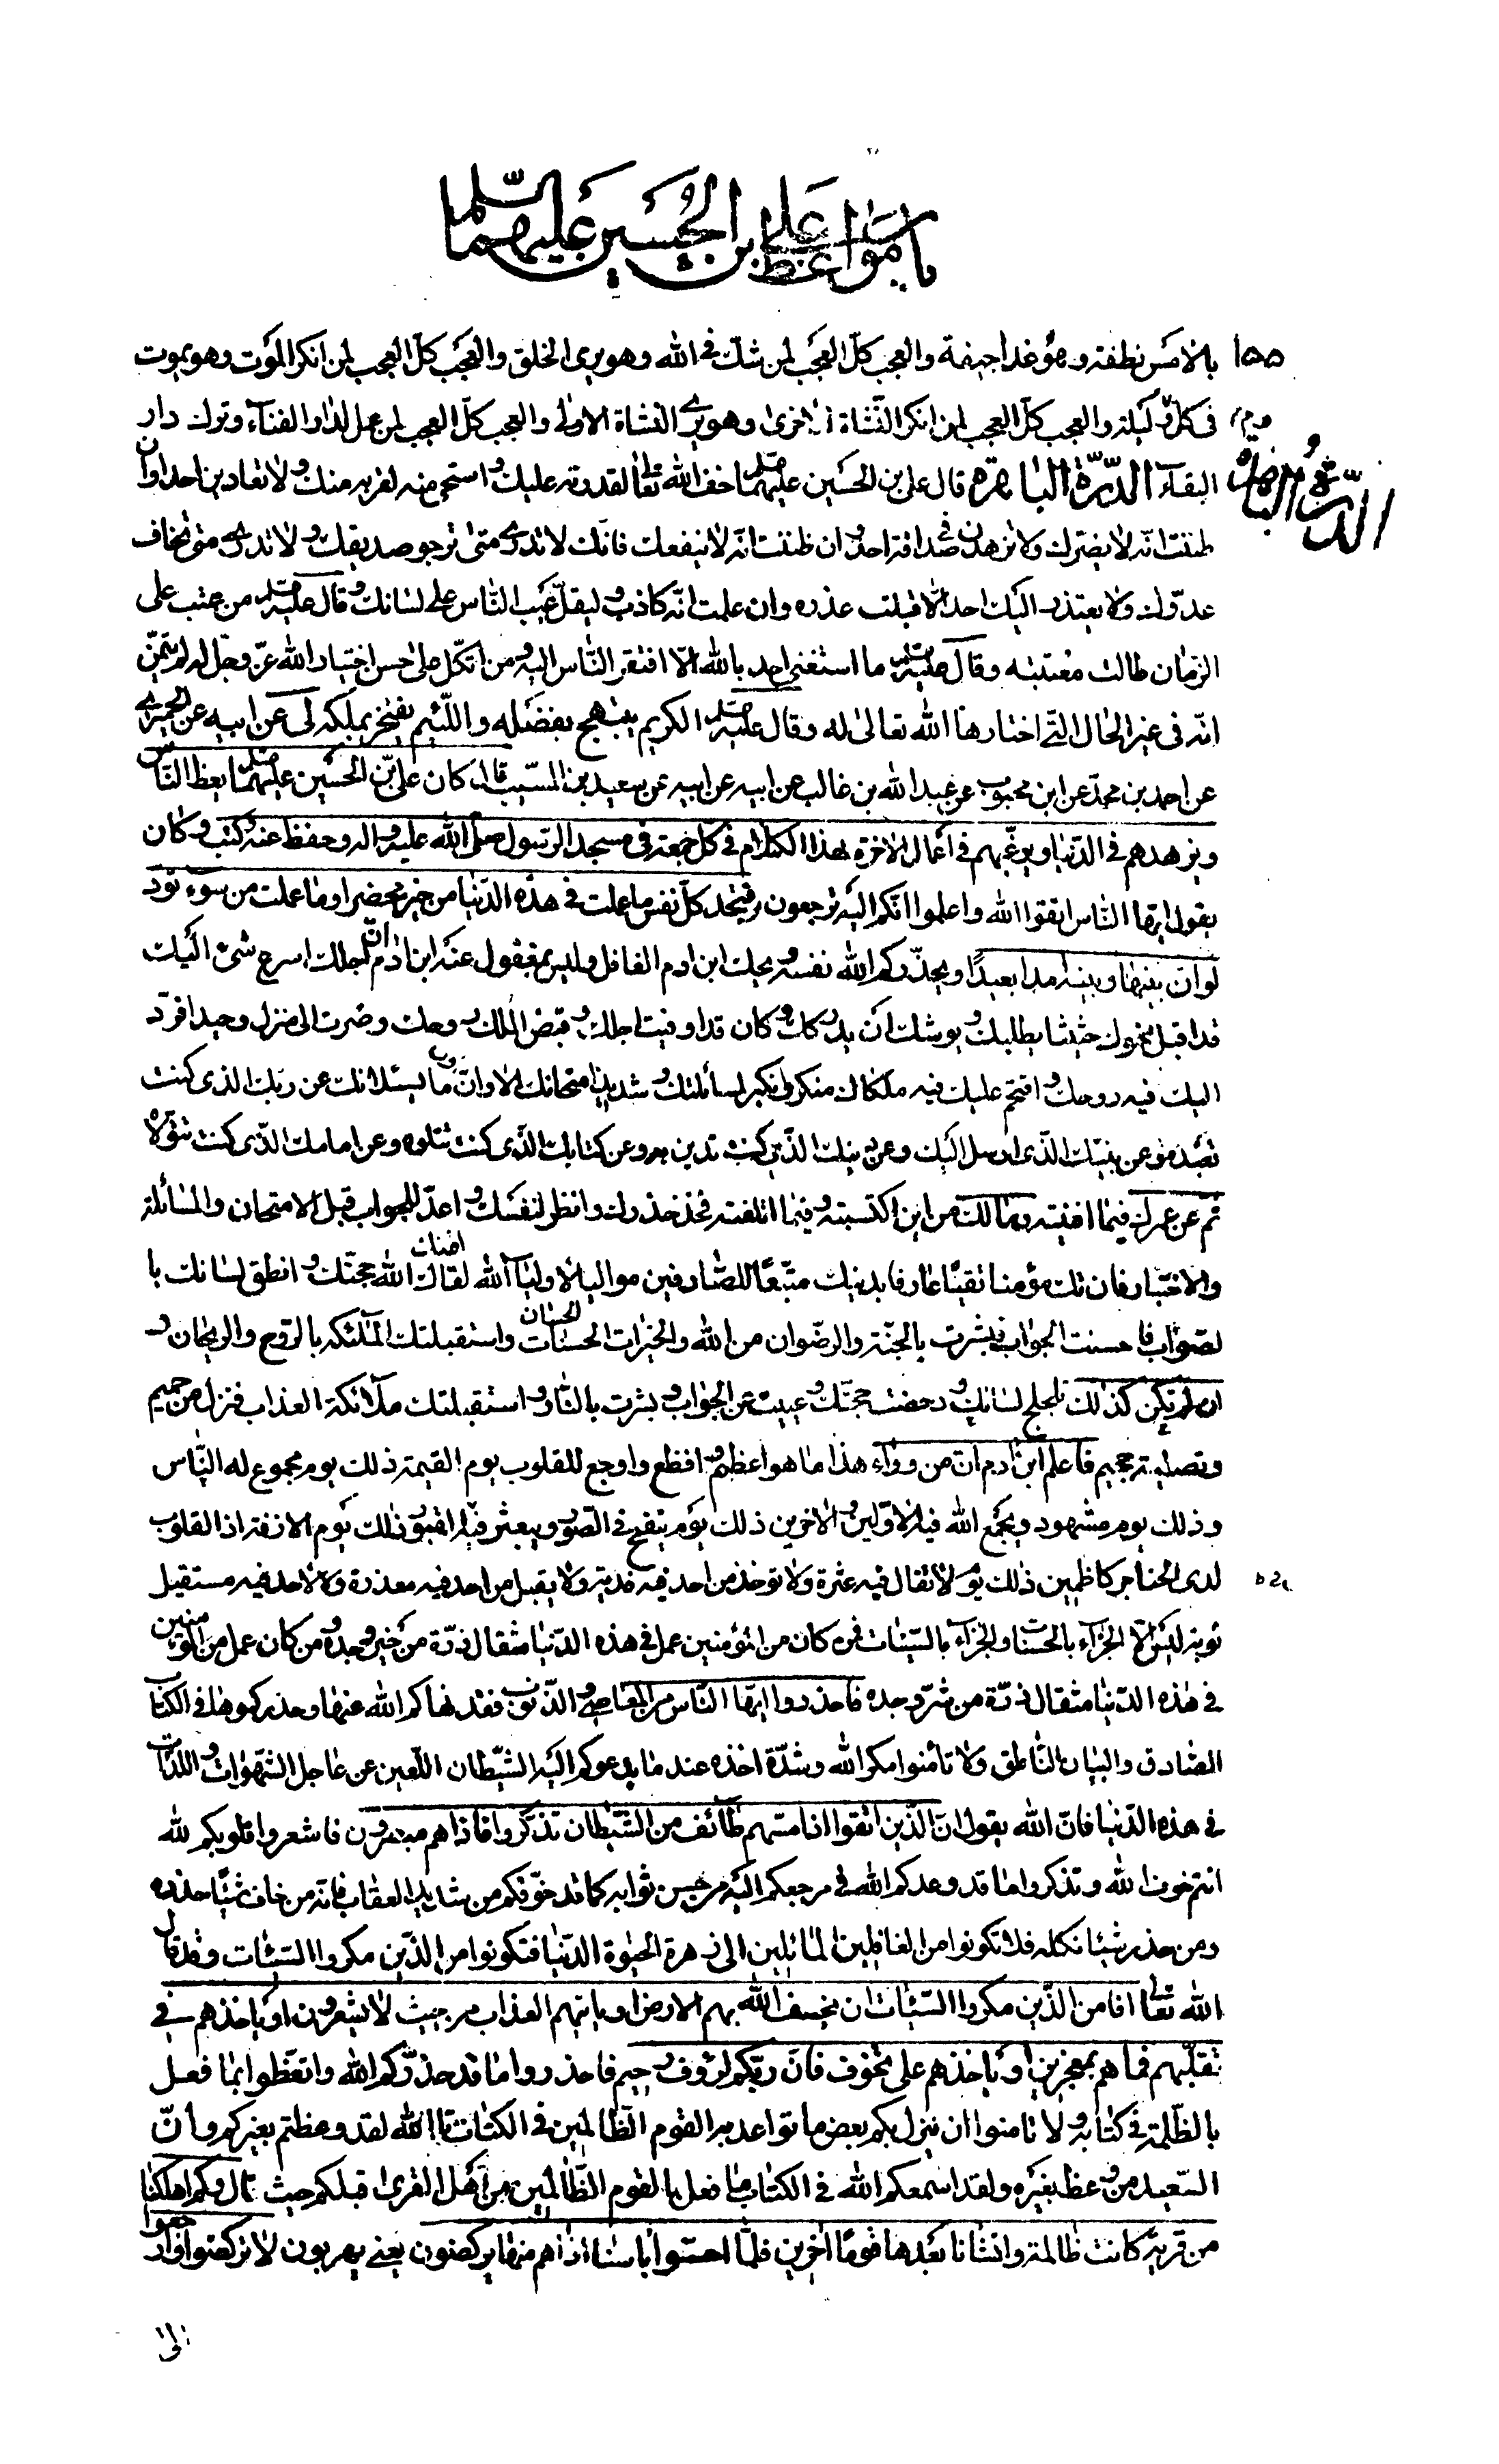 باب مواعظ علي بن الحسين عليهما السلم
بالامس نطفة وهو غدا جيفة والعجب كل العجب لمن شك فى الله وهو يرى الخلق والعجب كل العجب لمن انكر الموت وهو يموت
فى كل يوم وليلة والعجب كل العجب لمن انكر النشاة الاخرى وهو يرى النشاة الاولى والعجب كل العجب لمن عمل لدار الفناء وترك دار
البقاء الدرة الباهرة قال على بن الحسين عليهما خف الله تعالى لقدرته عليك واستحى منه لقربه منك ولا تعادين احدا وان
ظننت انه لا يضرك ولا تزهدن فى صداقة احد وان ظننت انه لا ينفعك فانك لا تدرى متى ترجو صديقك ولا تدرى متى تخاف
عدوك ولا يعتذر اليك احد الا قبلت عذره وان علمت انه كاذب وليقل عيب الناس على لسانك وقال عليه من عتب على
الزمان طالت معتبته وقال عليه ما استغنى احد بالله الا افتقر الناس اليه ومن اتكل على حسن اختيار الله عز وجل له لم يتمن
انه فى غير الحال التى اختارها الله تعالى له وقال عليه الكريم يبتهج بفضله واللئيم يفتخر بملكه لى عن ابيه عن الحميرى
عن احمد بن محمد عن ابن محبوب عن عبد الله بن غالب عن ابيه عن ابيه عن سعيد بن المسيب قال كان على بن الحسين عليهما يعظ الناس
ويزهدهم فى الدنيا ويرغبهم فى اعمال الاخرة بهذا الكلام فى كل جمعة فى مسجد الرسول صلى الله عليه واله وحفظ عنه وكتب وكان
يقول ايها الناس اتقوا الله واعلموا انكم اليه ترجعون فتجد كل نفس ما عملت فى هذه الدنيا من خير محضرا وما عملت من سوء تود
لو ان بينها وبينه امدا بعيدا ويحذركم الله نفسه ويحك ابن ادم الغافل وليس بمغفول عنه ابن ادم ان اجلك اسرع شئ اليك
قد اقبل نحوك حثيثا يطلبك ويوشك ان يدركك وكان قد اوفيت اجلك وقبض الملك روحك وصرت الى منزل وحيدا فرد
اليك فيه روحك واقتحم عليك فيه ملكاك منكر ونكير لمسائلتك وشديد امتحانك الا وان اول ما يسئلانك عن ربك الذى كنت
تعبده وعن نبيك الذى ارسل اليك وعن دينك الذى كنت تدين به وعن كتابك الذى كنت تتلوه وعن امامك الذى كنت تتولاه
ثم عن عمرك فيما افنيته ومالك من اين اكتسبته وفيما اتلفته فخذ حذرك وانظر لنفسك واعد للجواب قبل الامتحان والمسائلة
والاختبار فان تك مؤمنا تقيا عارفا بدينك متبعا للصادقين مواليا لاولياء الله لقاك الله حجتك وانطق لسانك با
لصواب فاحسنت الجواب فبشرت بالجنة والرضوان من الله والخيرات الحسنات واستقبلتك الملئكة بالروح والريحان و
ان لم تكن كذلك تلجلج لسانك ودحضت حجتك وعييت عن الجواب وبشرت بالنار واستقبلتك ملائكة العذاب فنزل من حميم
وتصلية جحيم فاعلم ابن ادم ان من وراء هذا ما هو اعظم وافظع واوجع للقلوب يوم القيمة ذلك يوم مجموع له الناس
وذلك يوم مشهود ويجمع الله فيه الاولين والاخرين ذلك يوم ينفخ فى الصور ويبعثر فيه القبور ذلك يوم الازفة اذ القلوب
لدى الحناجر كاظمين ذلك يوم لا تقال فيه عثرة ولا توخذ من احد فيه فدية ولا يقبل من احد فيه معذرة ولا لاحد فيه مستقيل
توبة ليس الا الجزاء بالحسنات والجزاء بالسيئات فمن كان من المؤمنين عمل فى هذه الدنيا مثقال ذرة من خير وجده ومن كان عمل من المؤمنين
فى هذه الدنيا مثقال ذرة من شر وجده فاحذروا ايها الناس من المعاصى والذنوب فقد نهاكم الله عنها وحذركموها فى الكتاب
الصادق والبيان الناطق ولا تأمنوا مكر الله وشدة اخذه عند ما يدعوكم اليه الشيطان اللعين عن عاجل الشهوات واللذات
فى هذه الدنيا فان الله يقول ان الذين اتقوا اذا مسهم طائف من الشيطان تذكروا فاذا هم مبصرون فاشعروا قلوبكم لله
انتم خوف الله وتذكروا ما قد وعدكم الله فى مرجعكم اليه من حسن ثوابه كما قد خوفكم من شديد العقاب فانه من خاف شيئا حذره
ومن حذر شيئا نكله فلا تكونوا من الغافلين المائلين الى زهرة الحيوة الدنيا فتكونوا من الذين مكروا السيئات وقد قال
الله تعالى افامن الذين مكروا السيئات ان يخسف الله بهم الارض او ياتيهم العذاب من حيث لا يشعرون او ياخذهم فى
تقلبهم فما هم بمعجزين او ياخذهم على تخوف فان ربكم لرؤف رحيم فاحذروا ما قد حذركم الله واتعظوا بما فعل
بالظلمة فى كتابه ولا تامنوا ان ينزل بكم بعض ما تواعد به القوم الظالمين فى الكتاب تالله لقد وعظتم بغيركم وان
السعيد من وعظ بغيره ولقد اسمعكم الله فى الكتاب ما فعل بالقوم الظالمين من اهل القرى قبلكم حيث قال وكم اهلكنا
من قرية كانت ظالمة وانشانا بعدها قوما اخرين فلما احسوا باسنا اذا هم منها يركضون يعنى يهربون لا تركضوا وارجعوا
الى